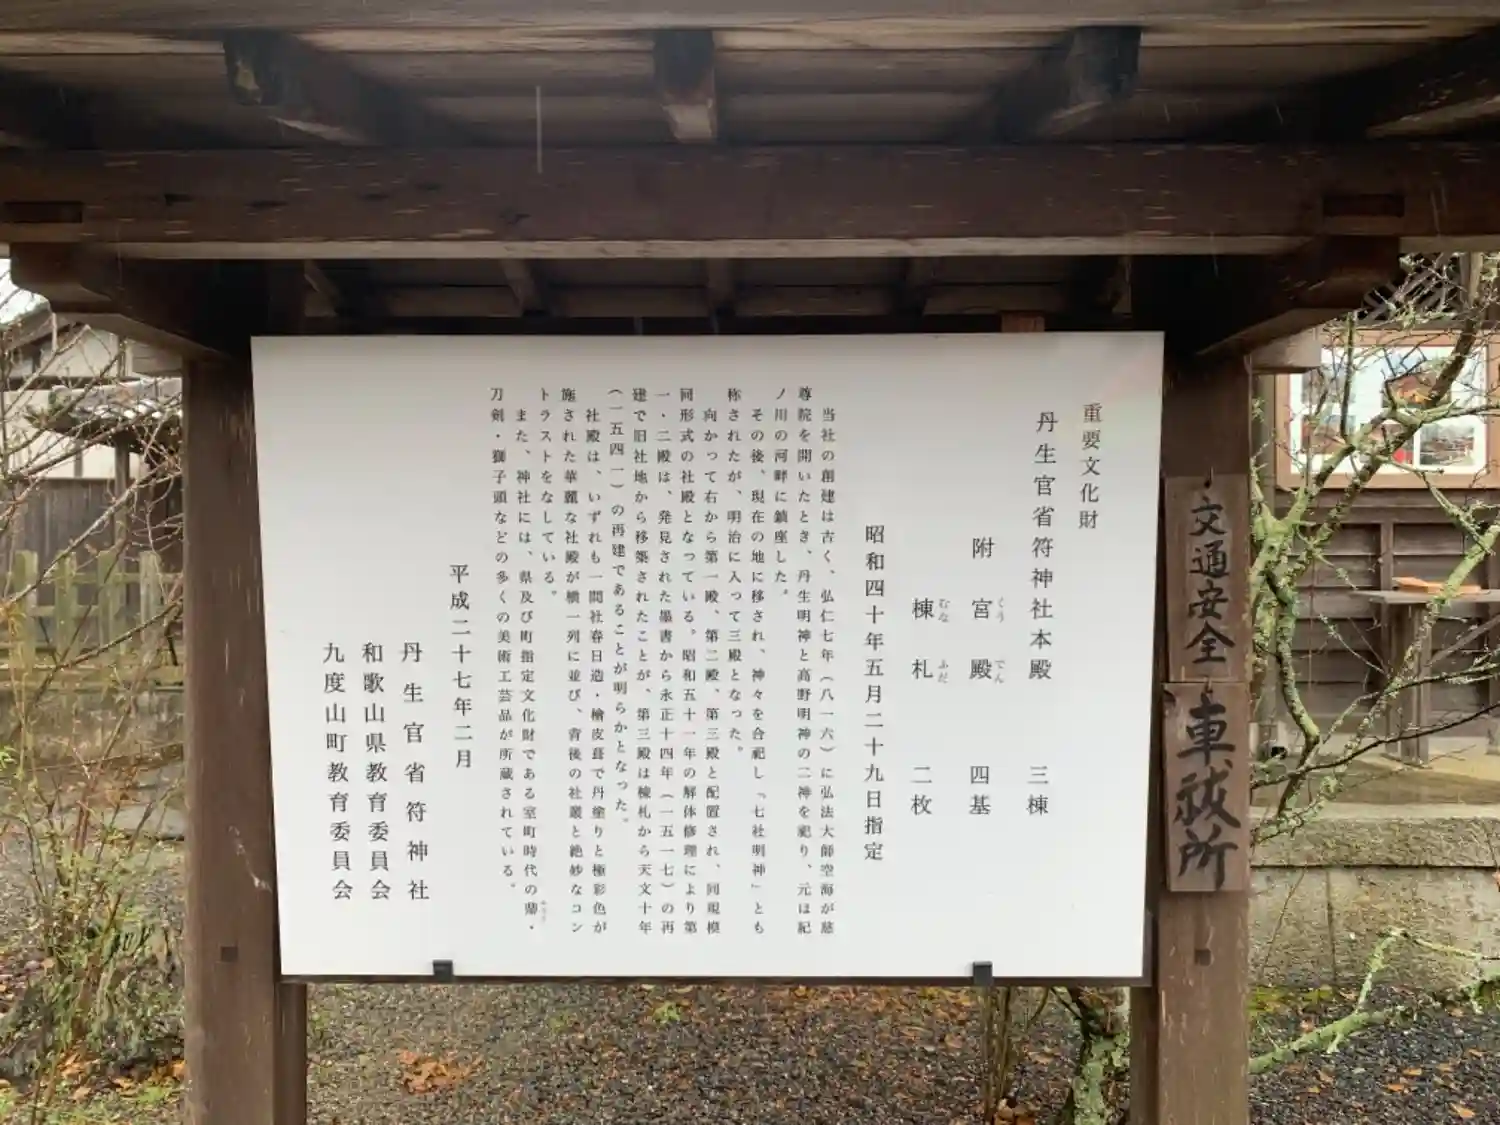 重要文化財
丹生官省符神社本殿　三棟
附　宮殿　四基
くう　でん
棟札　二枚
むな　ふだ
昭和四十年五月二十九日指定
当社の創建は古く、弘仁七年（八一六）に弘法大師空海が慈
尊院を開いたとき、丹生明神と高野明神の二神を祀り、元は紀
ノ川の河畔に鎮座した。
その後、現在の地に移され、神々を合祀し「七社明神」とも
称されたが、明治に入って三殿となった。
向かって右から第一殿、第二殿、第三殿と配置され、同規模
同形式の社殿となっている。昭和五十一年の解体修理により第
一・二殿は、発見された墨書から永正十四年（一五一七）の再
建で旧社地から移築されたことが、第三殿は棟札から天文十年
（一五四一）の再建であることが明らかとなった。
社殿は、いずれも一間社春日造・檜皮葺で丹塗りと極彩色が
施された華麗な社殿が横一列に並び、背後の社叢と絶妙なコン
トラストをなしている。
また、神社には、県及び町指定文化財である室町時代の・
刀剣・獅子頭などの多くの美術工芸品が所蔵されている。
平成二十七年二月
丹生官省符神社
和歌山県教育委員会
九度山町教育委員会
交通安全
車祓所